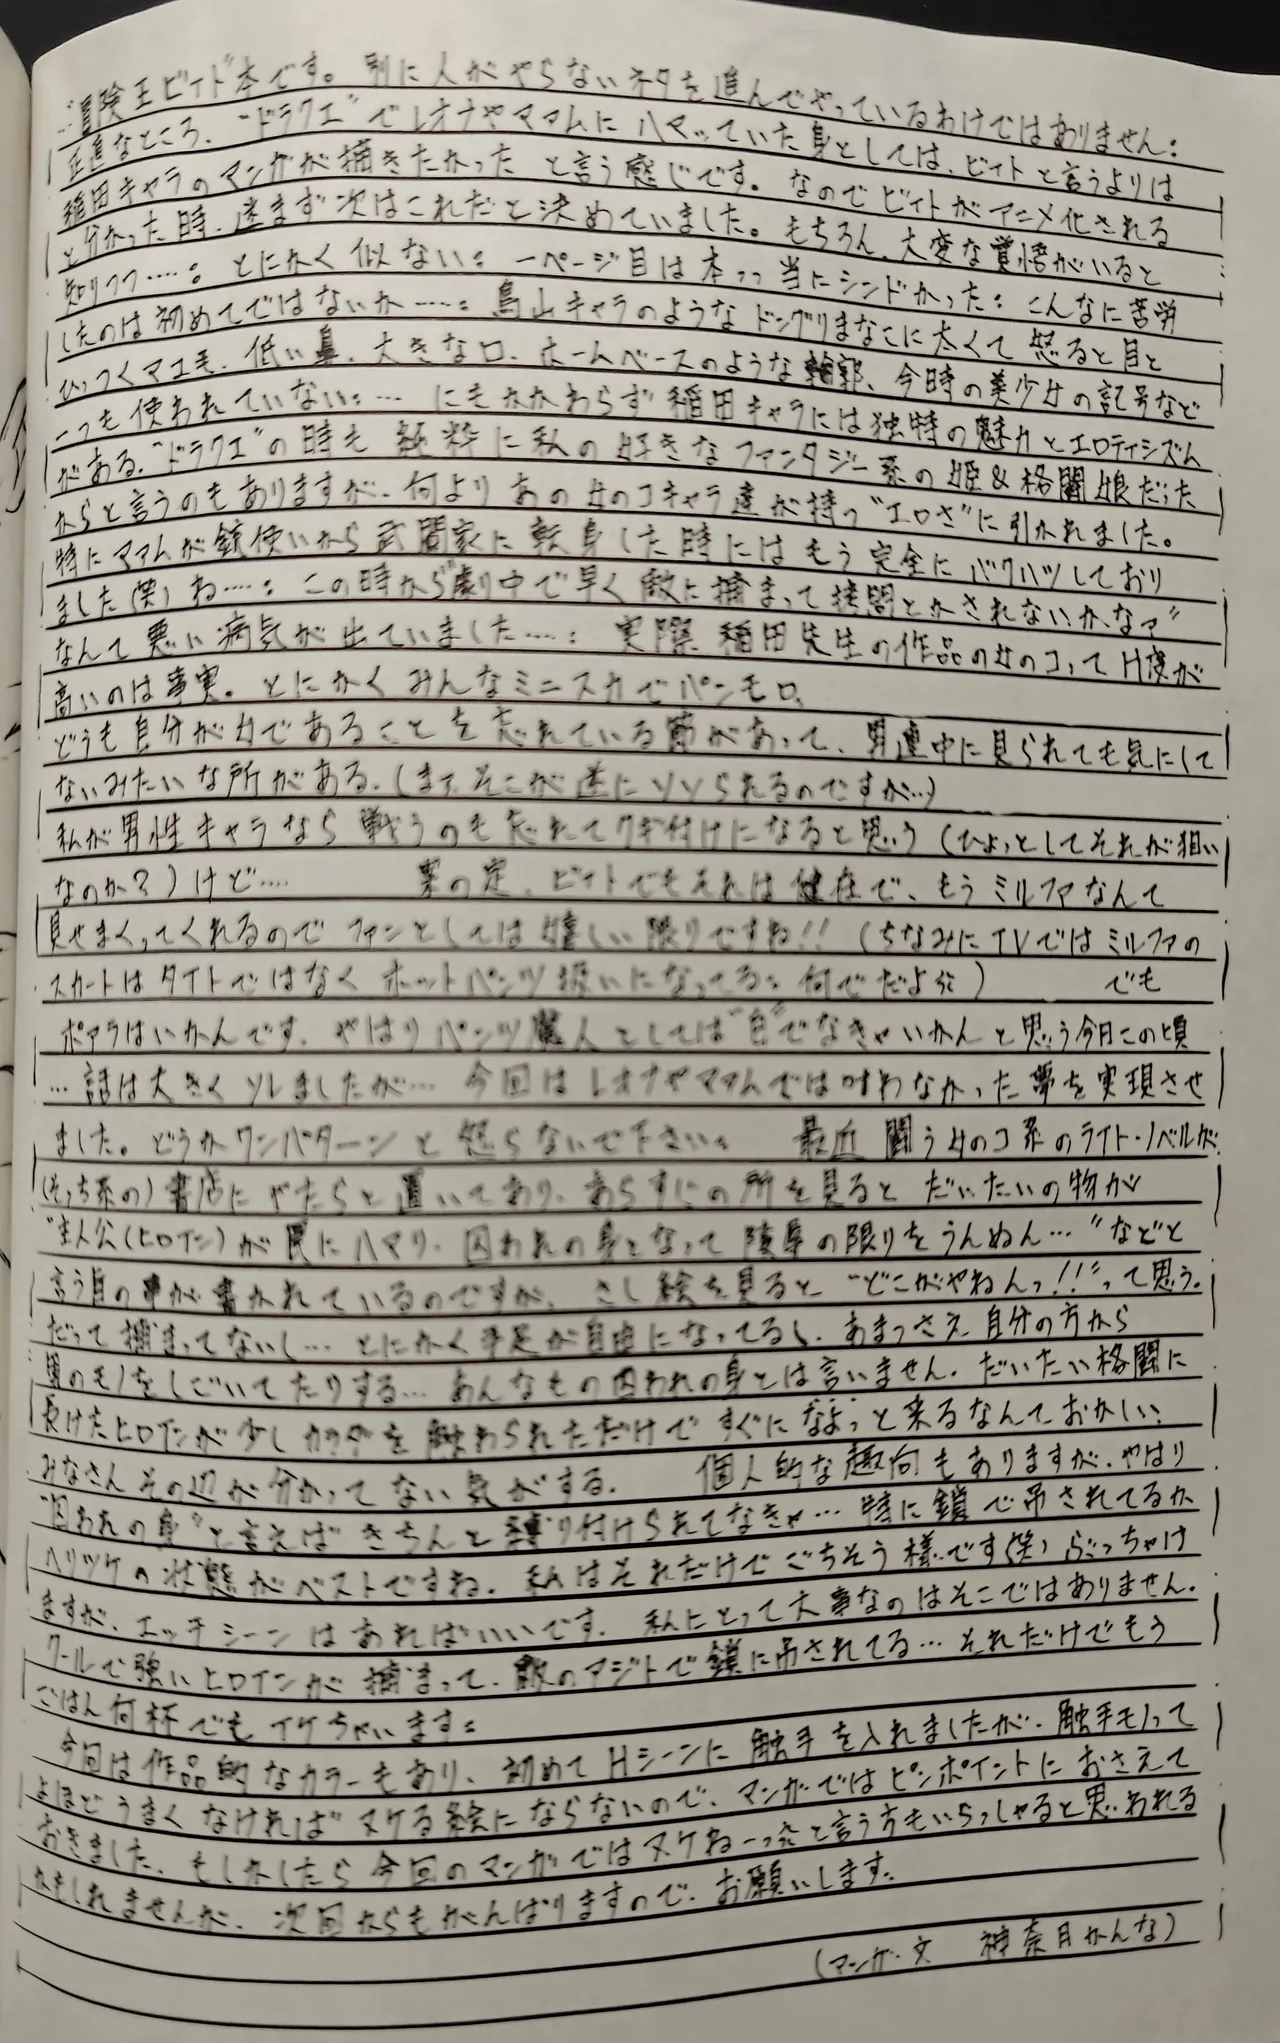 …"冒険王ビィト"本です。別に人がやらないネタを進んでやっているわけではありません；
正直なところ、"ドラクエ"でレオナやマァムにハマッていた身としては、ビィトと言うよりは
稲田キャラのマンガが描きたかったと言う感じです。なのでビィトがアニメ化される
と分かった時、迷まず次はこれだと決めていました。もちろん、大変な覚悟がいると
知りつつ……；とにかく似ない；一ページ目は本っっ当にシンドかった；こんなに苦労
したのは初めてではないか……；鳥山キャラのようなドングリまなこに太くて怒ると目と
ひっつくマユ毛、低い鼻、大きな口、ホームベースのような輪郭、今時の美少女の記号など
一つも使われていない；…にもかかわらず稲田キャラには独特の魅力とエロティシズム
がある、"ドラクエ"の時も純粋に私の好きなファンタジー系の姫&格闘娘だった
からと言うのもありますが、何よりあの女のコキャラ達が持つ"エロさ"に引かれました。
特にマァムが銃使いから武闘家に転身した時にはもう完全にバクハツしており
ました(笑)ね……；この時から"劇中で早く敵に捕まって拷問とかされないかなァ"
なんて悪い病気が出ていました……；実際稲田先生の作品の女のコってH度が
高いのは事実。とにかくみんなミニスカでパンモロ、
どうも自分が女であることを忘れている節があって、男連中に見られても気にして
ないみたいな所がある、(まァ、そこが逆にソソられるのですが…)
私が男性キャラなら戦うのも忘れてクギ付けになると思う(ひょっとしてそれが狙い
なのか？)けど…… 案の定、ビィトでもそれは健在で、もうミルファなんて
見せまくってくれるのでファンとしては嬉しい限りですね!!(ちなみにTVではミルファの
スカートはタイトではなくホットパンツ扱いになってる；何でだよ) でも
ポアラはいかんです、やはりパンツ魔人としては"白"でなきゃいかんと思う今日この頃
…話は大きくソレましたが…今回はレオナやマァムでは叶わなかった夢を実現させ
ました。どうかワンパターンと怒らないで下さい； 最近闘う女のコ系のライト・ノベルが
(そっち系の)書店にやたらと置いてあり、あらすじの所を見るとだいたいの物が
"主人公(ヒロイン)が罠にハマり、囚われの身となって陵辱の限りをうんぬん…"などと
言う旨の事が書かれているのですが、さし絵を見ると"どこがやねんっ!!"って思う。
だって捕まってないし…とにかく手足が自由になってるし、あまっさえ自分の方から
男のモノをしごいてたりする…あんなもの囚われの身とは言いません、だいたい格闘に
長けたヒロインが少しカラダを触わられただけですぐになよっと来るなんておかしい；
みなさんその辺が分かってない気がする、 個人的な趣向もありますが、やはり
"囚われの身"と言えばきちんと縛り付けられてなきゃ…特に鎖で吊されてるか
ハリツケの状態がベストですね、私はそれだけでごちそう様です(笑)ぶっちゃけ
ますが、エッチシーンはあればいいです、私にとって大事なのはそこではありません、
クールで強いヒロインが捕まって、敵のアジトで鎖に吊されてる…それだけでもう
ごはん何杯でもイケちゃいます；
今回は作品的なカラーもあり、初めてHシーンに触手を入れましたが、触手モノって
よほどうまくなければヌケる絵にならないので、マンガではピンポイントにおさえて
おきました、もしかしたら今回のマンガではヌケねーっと言う方もいらっしゃると思われる
かもしれませんが、次回からもがんばりますので、お願いします、
(マンガ・文 神奈月かんな)